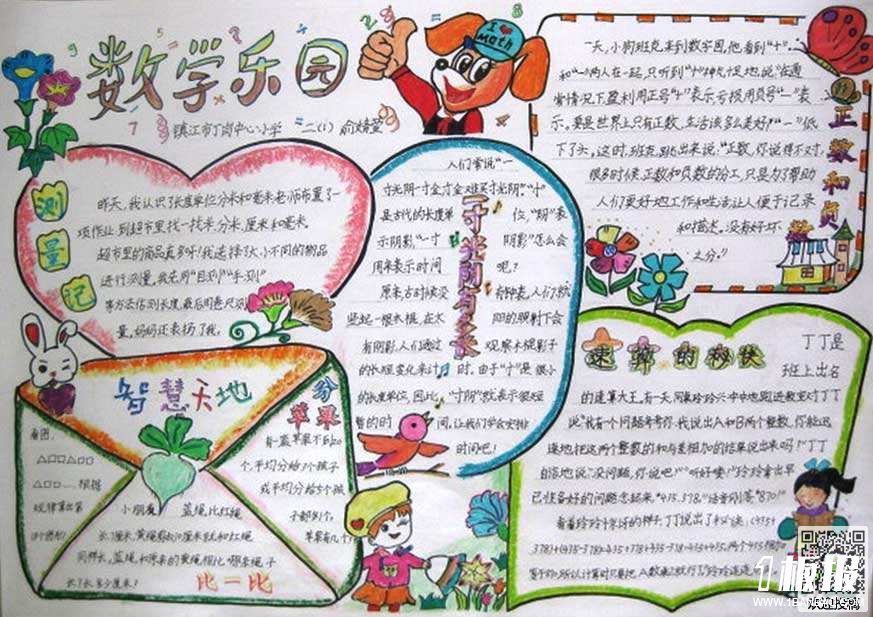 数学乐园
I ♥ Math
镇江市丁岗中心小学 二(1)
测量记
昨天,我认识了长度单位分米和毫米,老师布置了一
项作业:到超市里找一找米、分米、厘米和毫米。
超市里的商品真多呀!我选择了大小不同的物品
进行测量,我先用"目测""手测"
等方法估测长度,最后用卷尺测
量,妈妈还表扬了我。
一寸光阴有多长
人们常说"一
寸光阴一寸金,寸金难买寸光阴","寸"
是古代的长度单位,"阴"表
示阴影,"一寸阴影"怎么会
用来表示时间呢?
原来,古时候没有钟表,人们就
竖起一根木棍,在太阳的照射下会
有阴影,人们通过观察木棍影子
的长短变化来计时,由于"寸"是很小
的长度单位,因此,"寸阴"就表示很短
暂的时间,让我们学会安排
时间吧!
正数和负数
一天,小狗班克来到数学园,他看到"+"
和"-"两人在一起,只听到"+"神气十足地说:"在通
常情况下,盈利用正号"+"表示,亏损用负号"-"表
示。要是世界上只有正数,生活该多么美好!""-"低
下了头。这时,班克跳出来说:"正数,你说得不对,
很多时候,正数和负数的分工,只是为了帮助
人们更好地工作和生活,让人便于记录
和描述,没有好坏
之分。"
智慧天地
看图,
△□○△□○
△□○……根据
规律算出第
18个图形?
小朋友
蓝绳比红绳
长7厘米,黄绳剪去10厘米就和红绳
同样长,蓝绳和原来的黄绳相比,哪条绳子
长?长多少厘米?
比一比
分苹果
有一篮苹果不到20
个,平均分给3个孩子
或平均分给5个孩
子都多1个,
苹果有几个?
速算的秘诀
丁丁是
班上出名
的速算大王,有一天,同桌玲玲兴冲冲地跑进教室对丁丁
说:"我有个问题考考你,我说出A和B两个整数,你能迅
速地把这两个整数的和与差相加的结果说出来吗?"丁丁
自信地说:"没问题,你说吧!""听好喽!"玲玲拿出早
已准备好的问题念起来,"415,378。"话音刚落"830!"
看着玲玲十分讶的样子,丁丁说出了秘诀:(415+
378)+(415-378)=415+378+415-378=415+415,两个415相加
1板报
WWW.1BANBAO.COM